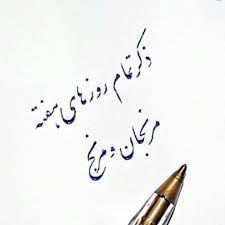 ذکر تمام روزهای هفته
مرنجان و مرنج